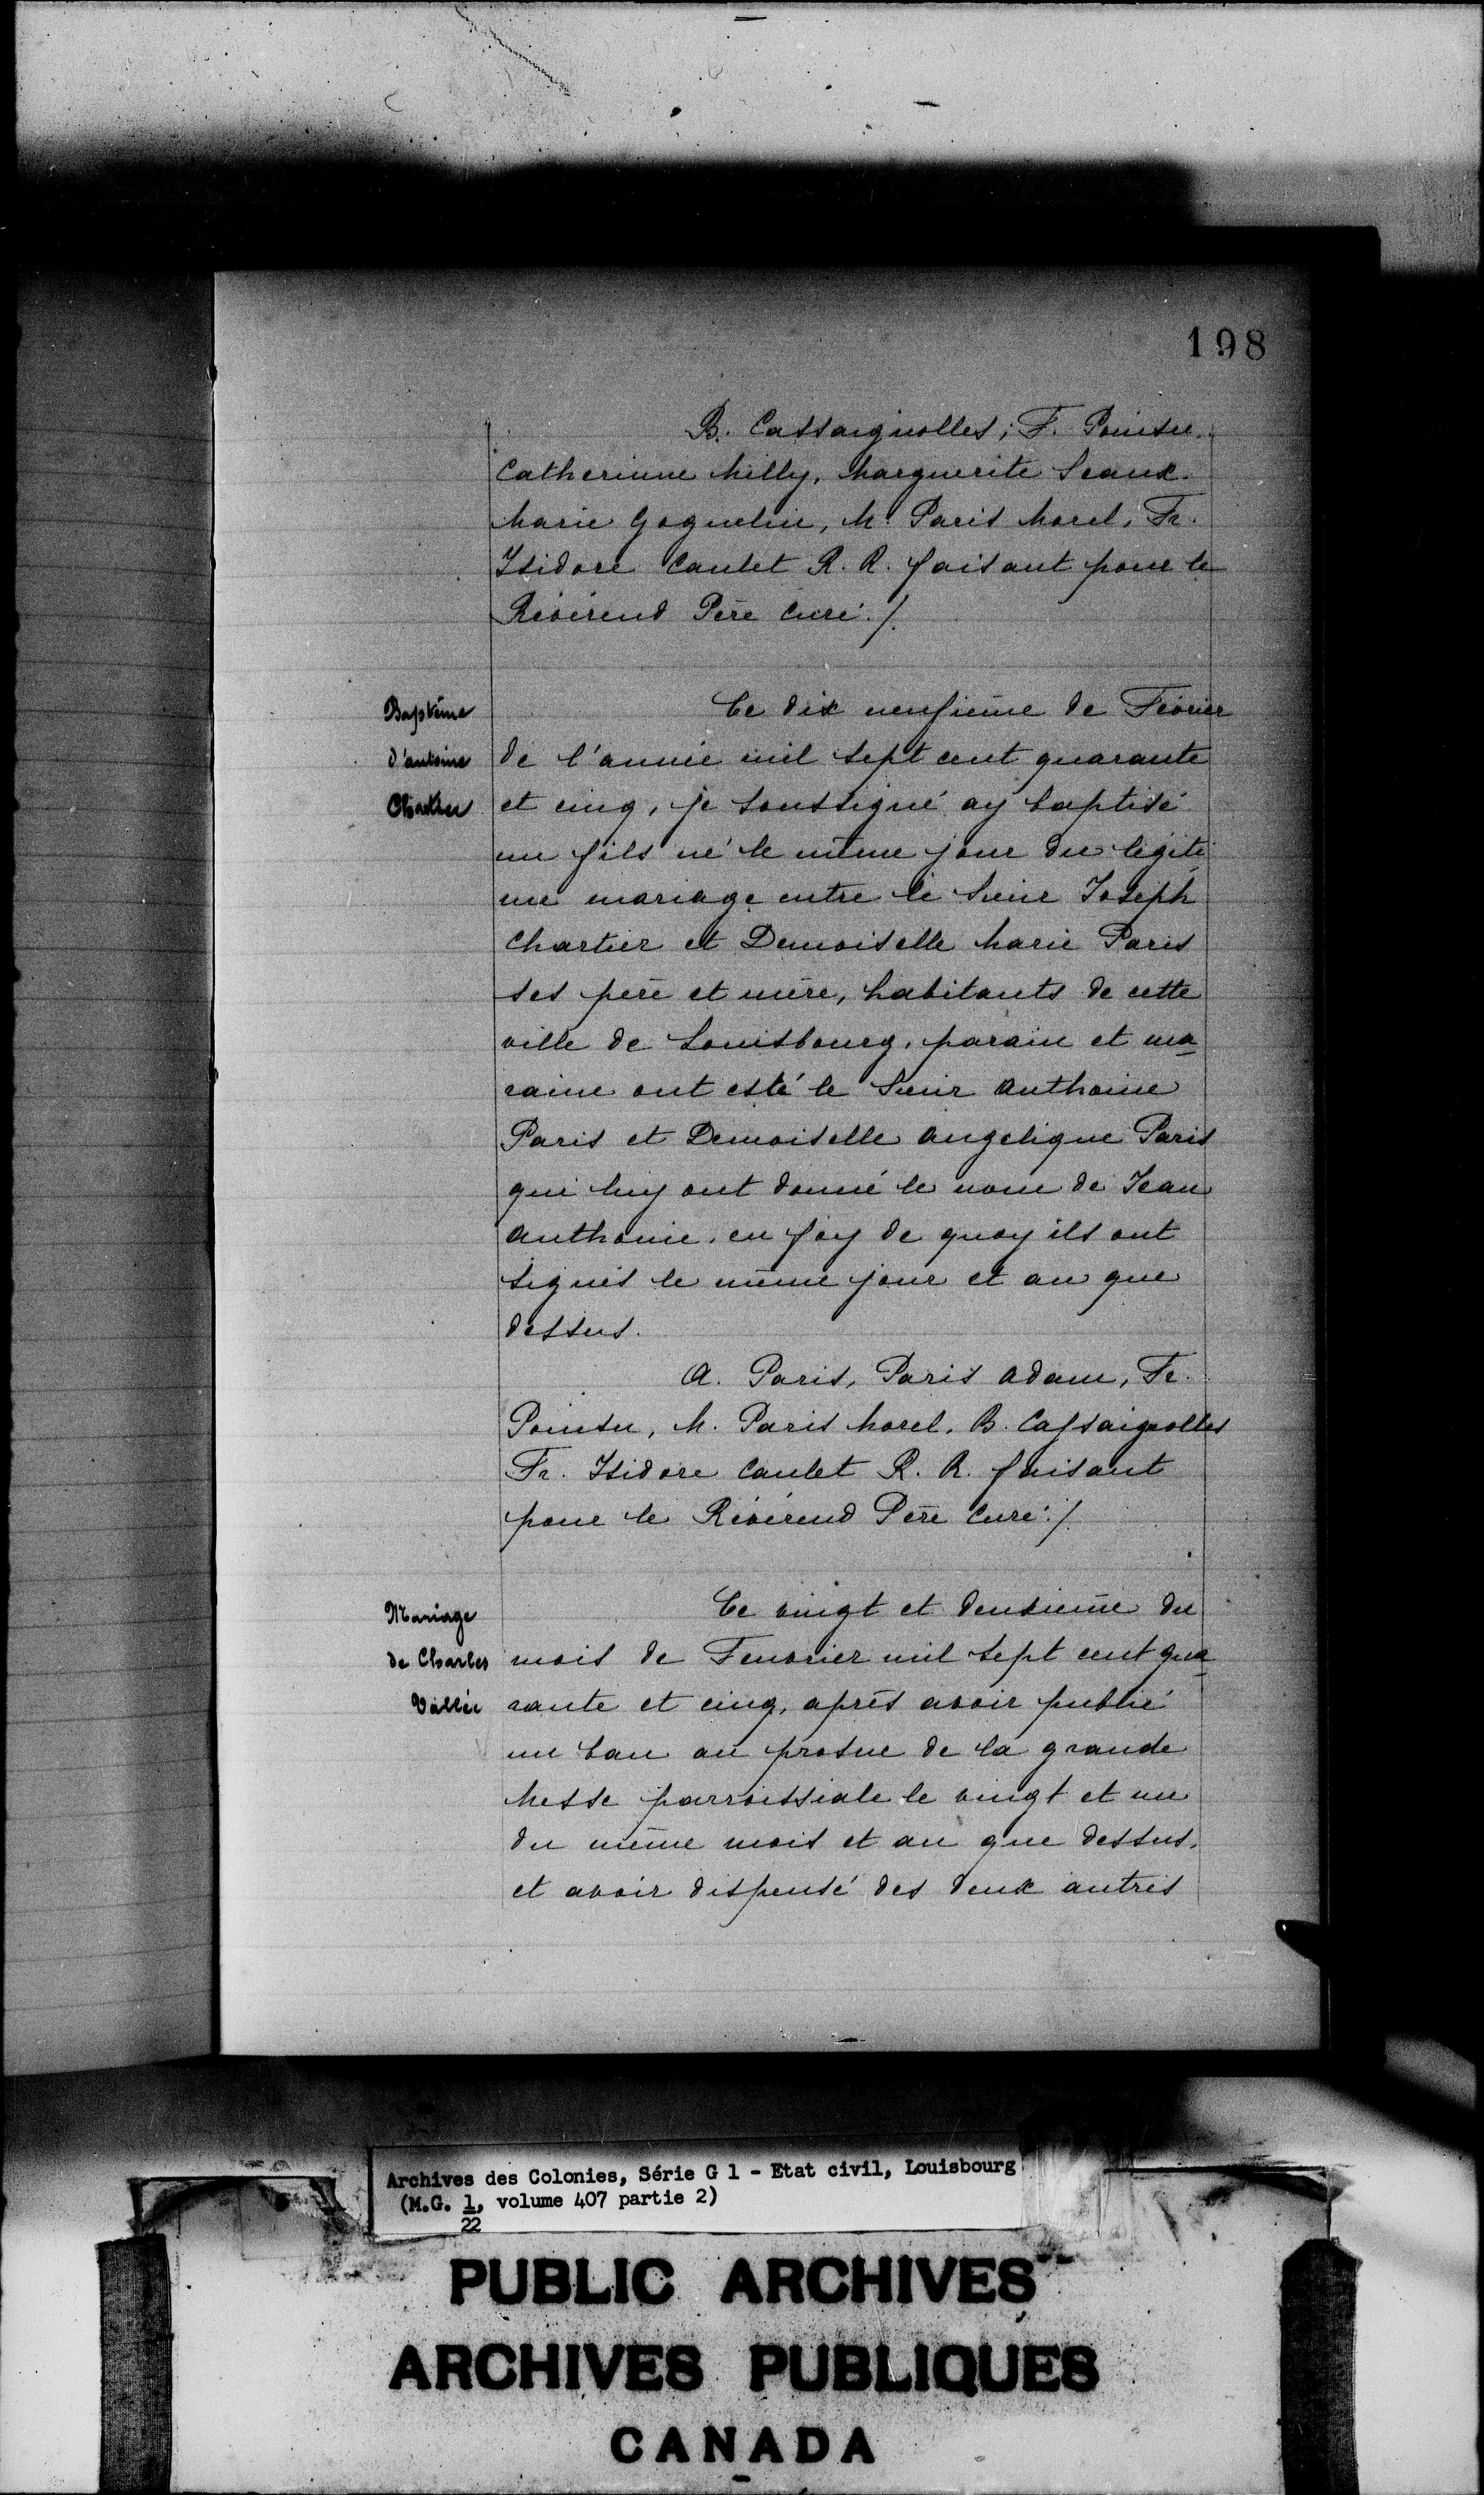 198
B. Cassaignolles; F. Pointu.
Catherinne Milly, Marguerite Seaux.
Marie Goguelin, M. Paris Morel, Fr.
Isidore Caulet R. R. faisant pour le
Révérend Père Curé ./.
Baptême
d'antoine
Chartier
Ce dix neufième de Février
de l'année mil sept cent quarante
et cinq, je soussigné ay baptisé
un fils né le même jour du légiti
me mariage entre le Sieur Joseph
Chartier et Demoiselle Marie Paris
ses père et mère, habitants de cette
ville de Louisbourg, parain et ma
raine ont esté le Sieur Anthoine
Paris et Demoiselle Angelique Paris
qui luy ont donné le nom de Jean
Anthoine, en foy de quoy ils ont
signés le même jour et an que
dessus.
A. Paris, Paris Adam, Fr.
Pointu, M. Paris Morel, B. Cassaignolles
Fr. Isidore Caulet R. R. faisant
pour le Révérend Père Curé ./.
Mariage
de Charles
Vallée
Ce vingt et deusieme du
mois de Feuvrier mil sept cent qua
rante et cinq, après avoir publié
un ban au prosne de la grande
Messe parroissiale le vingt et un
du même mois et an que dessus,
et avoir dispensé des deux autres
Archives des Colonies, Série G 1 - Etat civil, Louisbourg
(M.G. 1, volume 407 partie 2)
22
PUBLIC ARCHIVES
ARCHIVES PUBLIQUES
CANADA